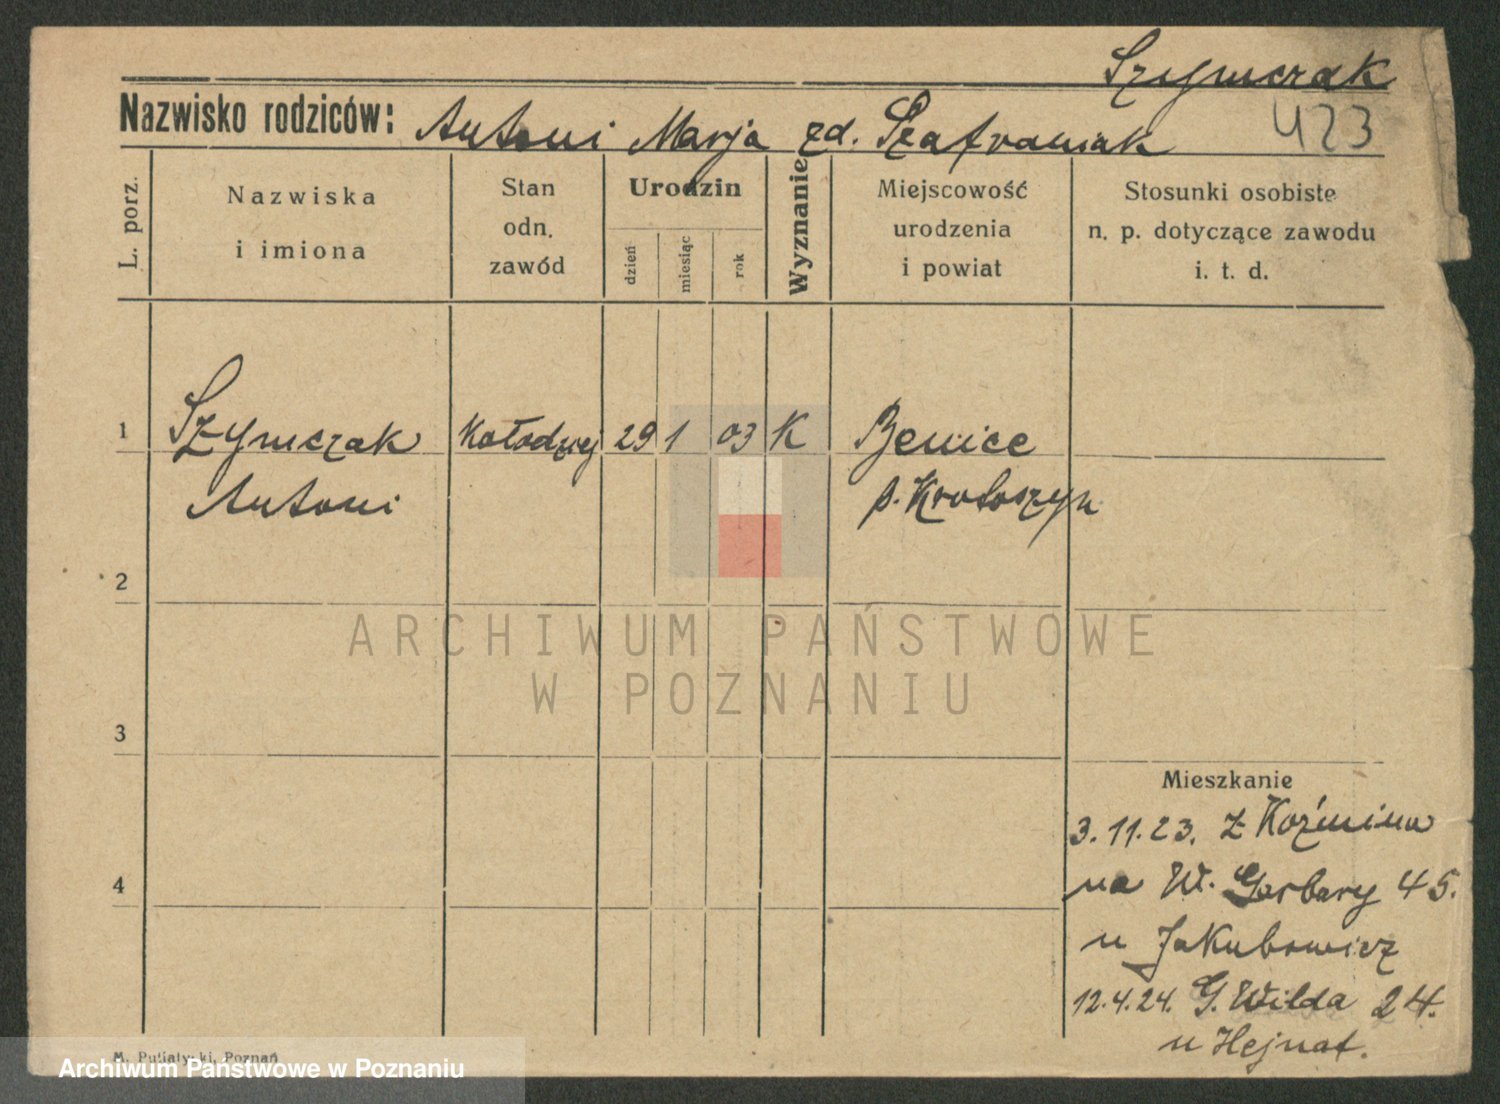 Szymczak
Nazwisko rodziców: Antoni Marja zd. Szafraniak
423
L. porz.
Nazwiska
i imiona
Stan
odn.
zawód
Urodzin
dzień
miesiąc
rok
Wyznanie
Miejscowość
urodzenia
i powiat
Stosunki osobiste
n. p. dotyczące zawodu
i. t. d.
1 Szymczak kołodziej 29 1 03 K Benice
Antoni p. Krotoszyn
2
ARCHIWUM PAŃSTWOWE
W POZNANIU
3
Mieszkanie
3.11.23. z Koźmina
4
na W. Garbary 45.
u Jakubowicz
12.4.24. G. Wilda 24.
u Hejnat.
M. Putiatycki, Poznań
Archiwum Państwowe w Poznaniu